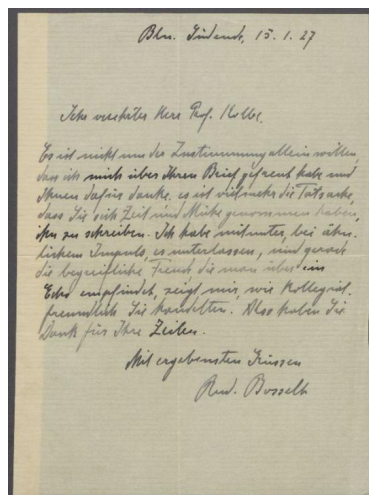 Bln. Südende, 15.1.27
Sehr verehrter Herr Prof. Kolbe,
Es ist nicht um der Zustimmung allein willen,
dass ich mich über Ihren Brief gefreut habe und
Ihnen dafür danke. es ist vielmehr die Tatsache,
dass Sie sich Zeit und Mühe genommen haben,
ihn zu schreiben. Ich habe mitunter, bei ähn-
lichem Impuls, es unterlassen, und gerade
die begreifliche Freude die man über ein
Echo empfindet, zeigt mir, wie kollegial
freundlich Sie handelten. Also haben Sie
Dank für Ihre Zeilen.
Mit ergebensten Grüssen
Rud. Bosselt